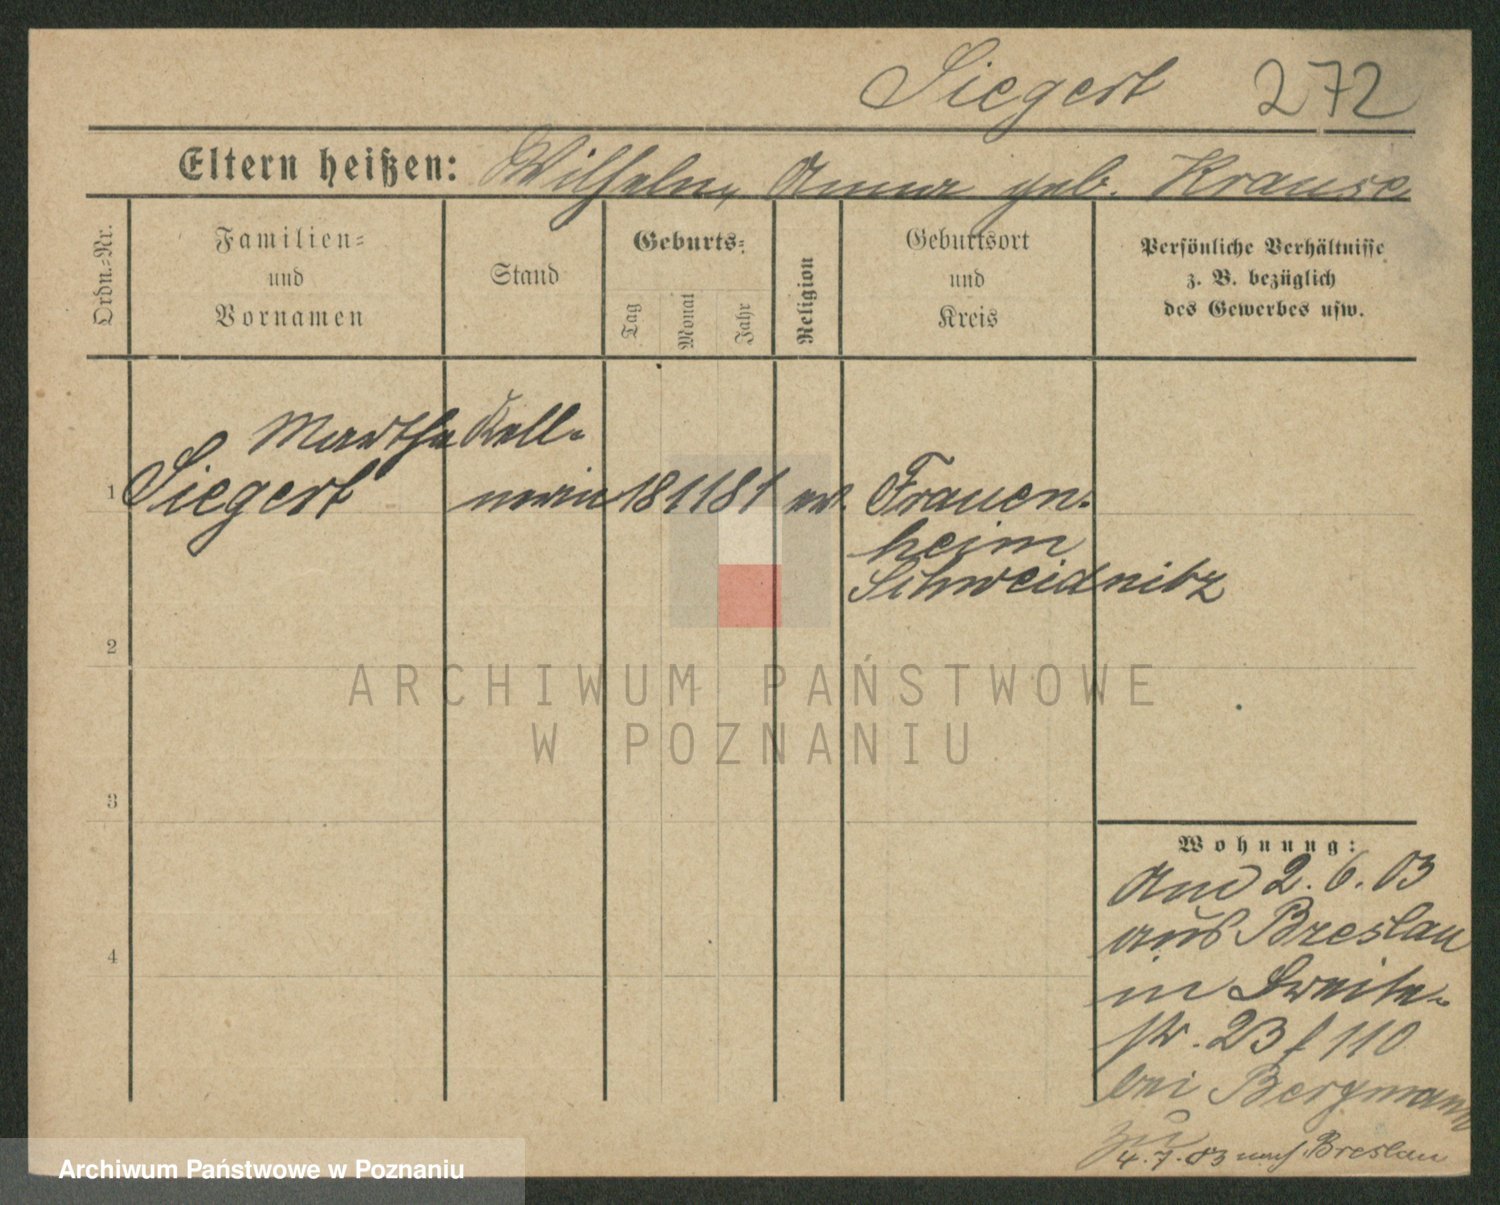 Siegert 272
Eltern heißen: Wilhelm, Anna geb. Krause
Ordn.-Nr.
Familien- und Vornamen
Stand
Geburts-
Tag
Monat
Jahr
Religion
Geburtsort und Kreis
Persönliche Verhältnisse
z. B. bezüglich
des Gewerbes usw.
Martha Kell-
1 Siegert nerin 18 1 81 ev. Frauen-
heim
Schweidnitz
2
ARCHIWUM PAŃSTWOWE
W POZNANIU
3
Wohnung:
Am 2.6.03
aus Breslau
in Breite-
str. 23 f 110
bei Bergmann
4
4.7.03 nach Breslau
Archiwum Państwowe w Poznaniu